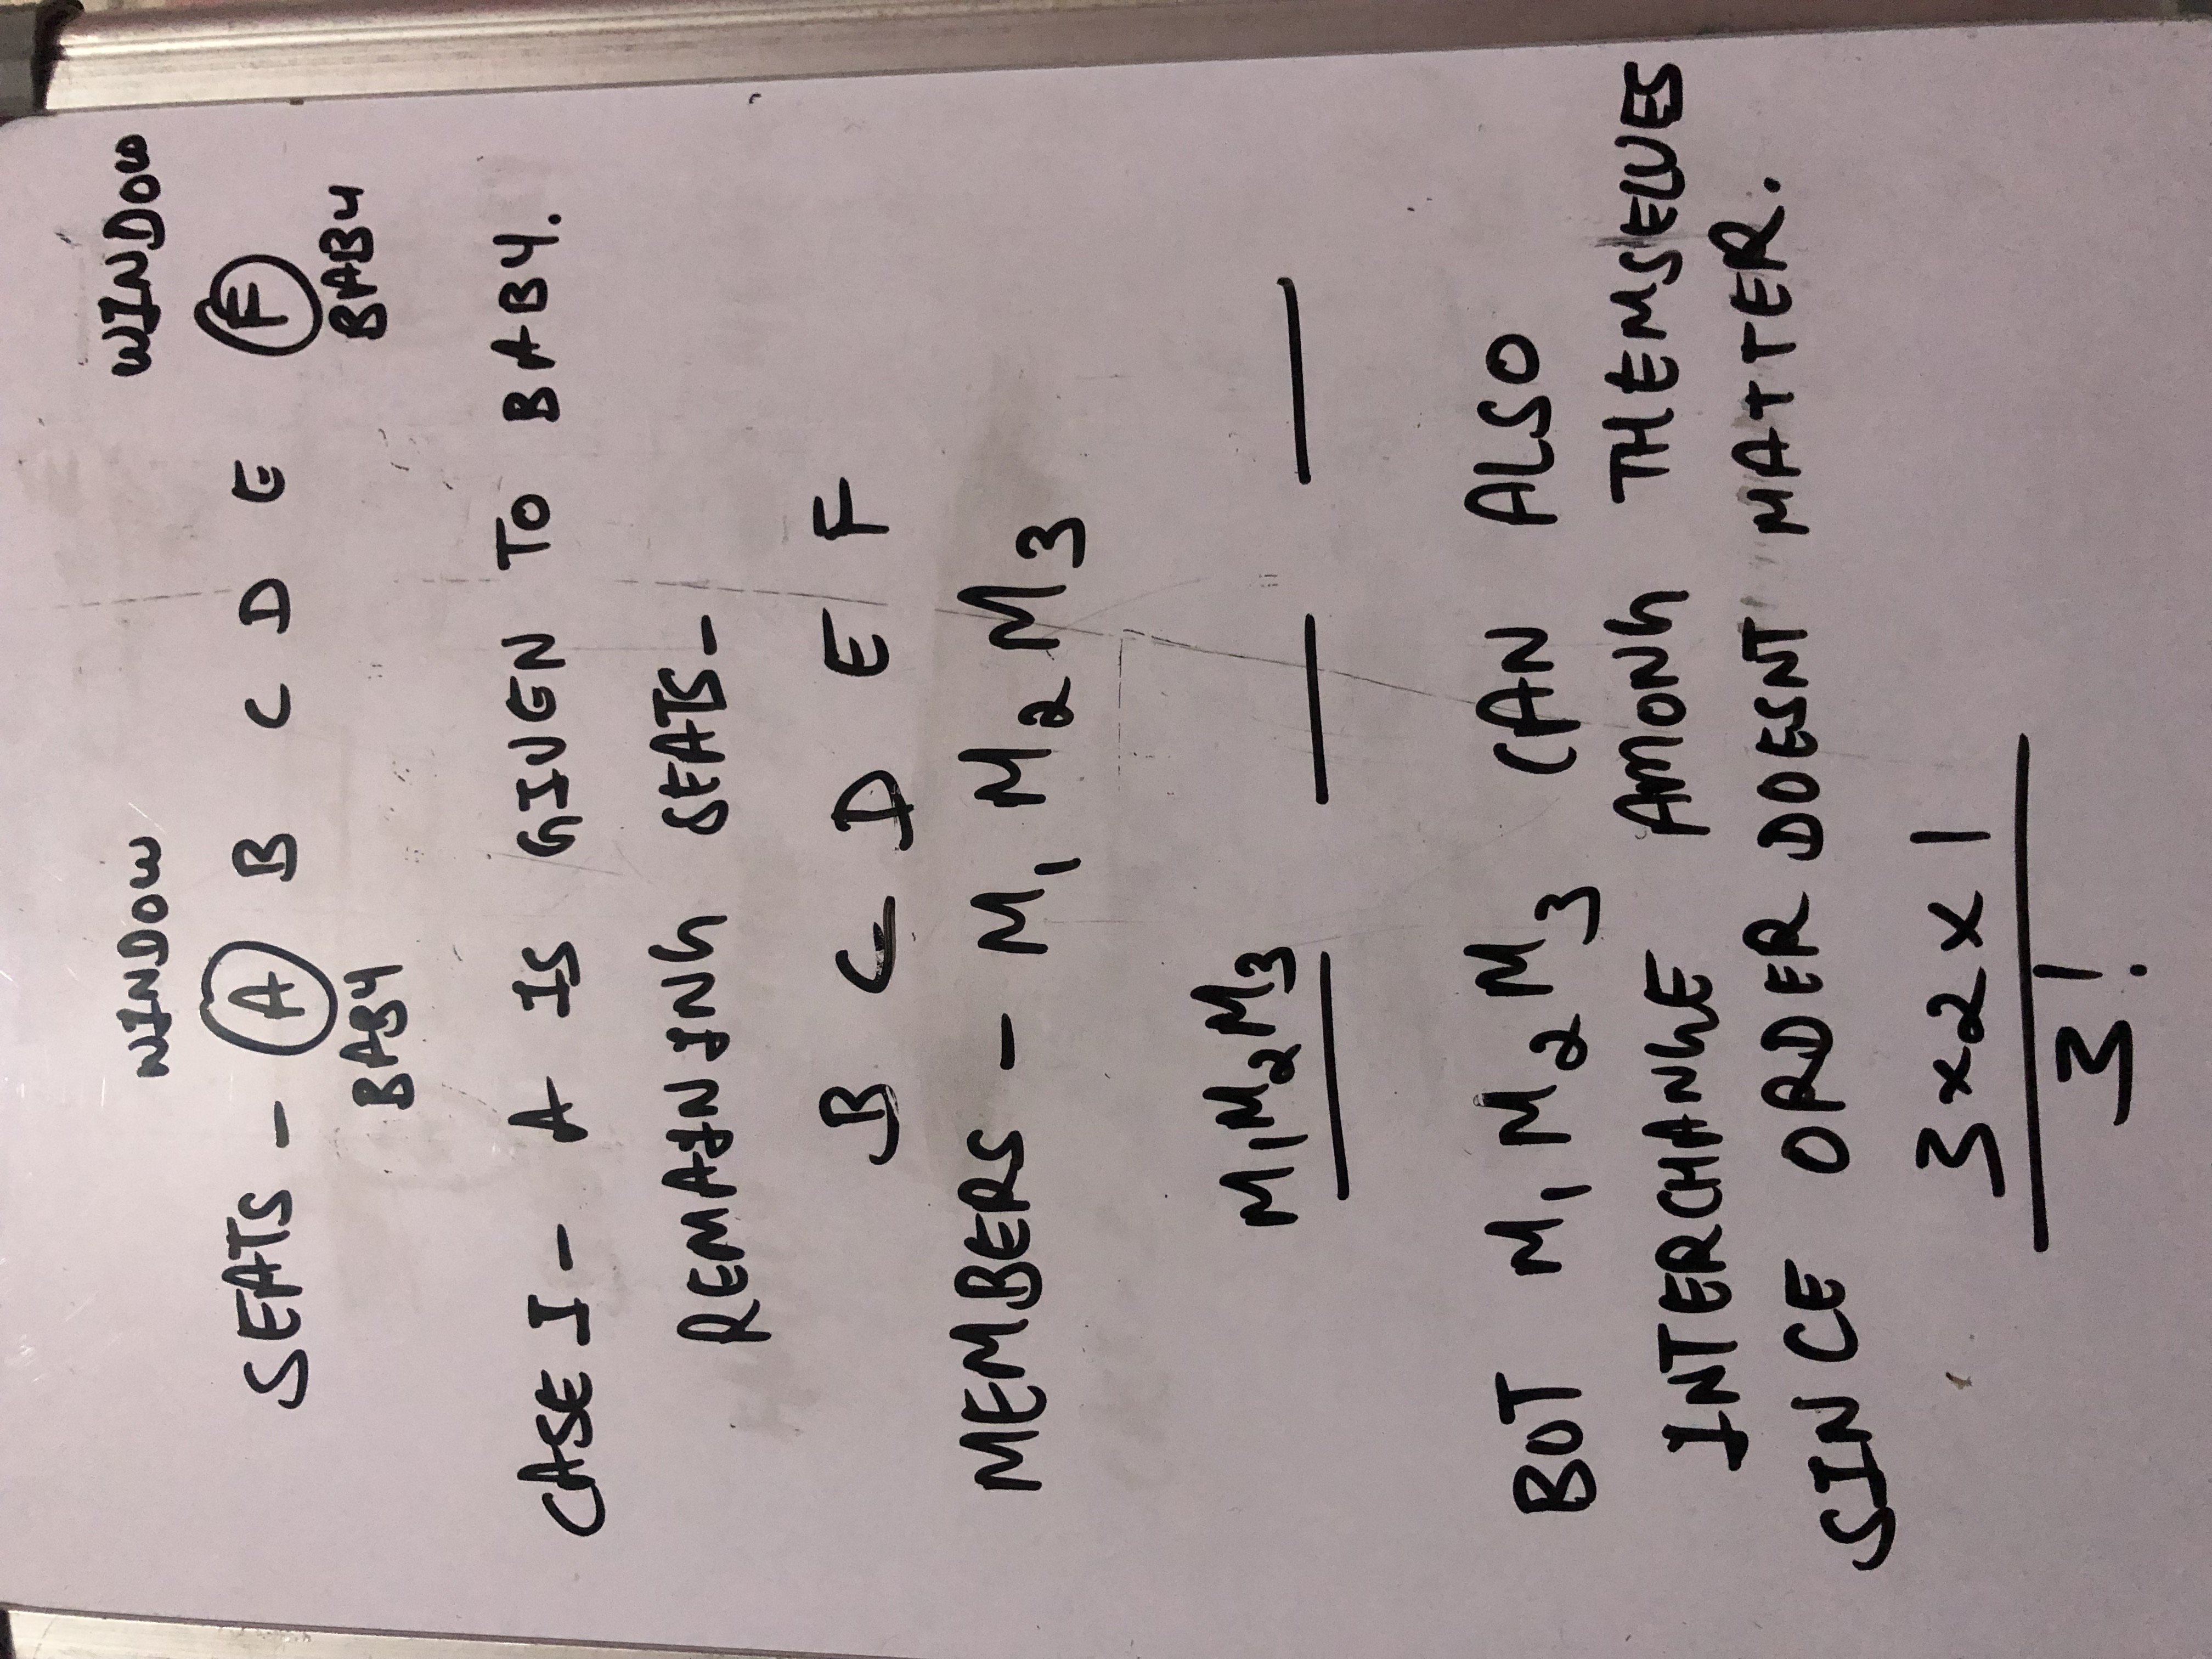 WINDOW WINDOW
SEATS - A B C D E F
BABY BABY
CASE I - A IS GIVEN TO BABY.
REMAINING SEATS -
B C D E F
MEMBERS - M1 M2 M3
M1M2M3
BUT M1 M2 M3 CAN ALSO
INTERCHANGE AMONG THEMSELVES
SINCE ORDER DOESNT MATTER.
3 x 2 x 1
3!